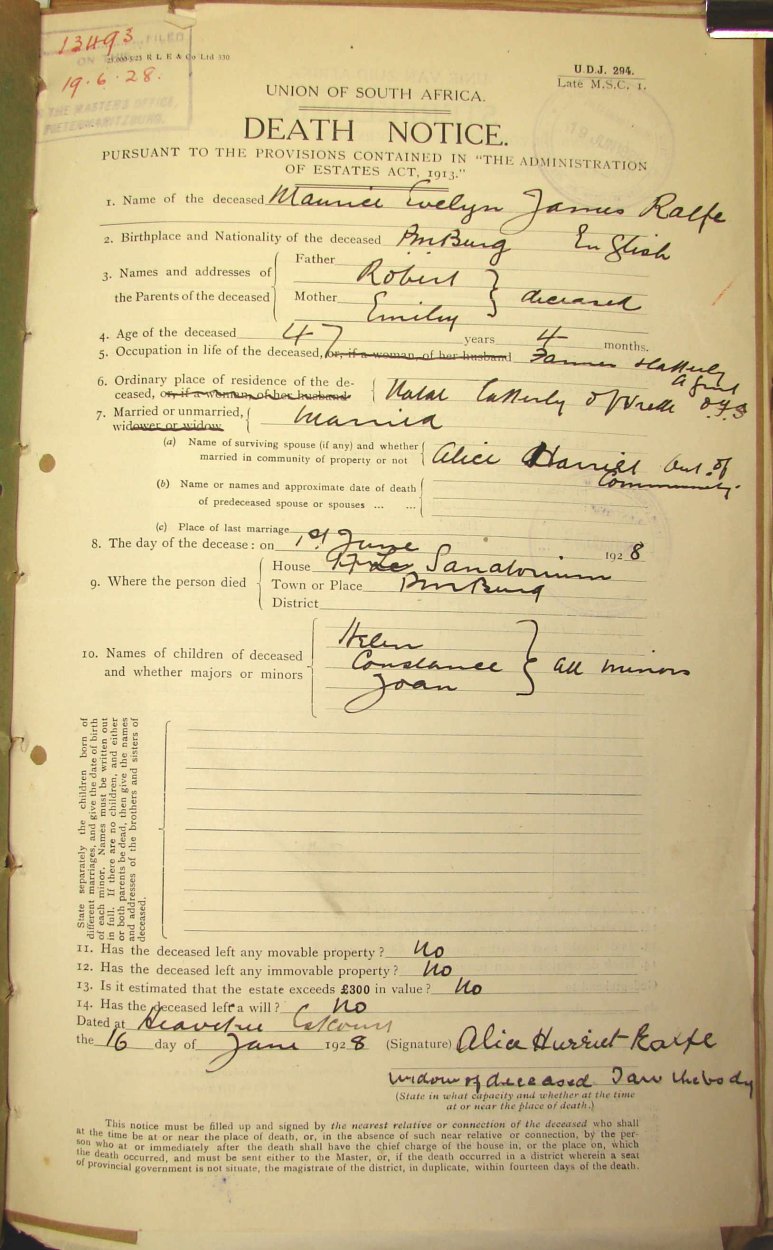 13493
FILED
ON THE
21,000-5-25 R L E & Co Ltd 330
19.6.28.
THE MASTER'S OFFICE,
PIETERMARITZBURG.
U.D.J. 294.
Late M.S.C. 1.
UNION OF SOUTH AFRICA.
DEATH NOTICE.
PURSUANT TO THE PROVISIONS CONTAINED IN "THE ADMINISTRATION
OF ESTATES ACT, 1913."
1. Name of the deceased Maurice Evelyn James Ralfe
2. Birthplace and Nationality of the deceased PmBurg English
3. Names and addresses of the Parents of the deceased
Father Robert
Mother Emily
deceased
4. Age of the deceased 47 years 4 months.
5. Occupation in life of the deceased, or, if a woman, of her husband Farmer & latterly Agent
6. Ordinary place of residence of the de-
ceased, or, if a woman, of her husband Natal latterly of Vrede O.F.S
7. Married or unmarried, Married
widower or widow
(a) Name of surviving spouse (if any) and whether
married in community of property or not Alice Harriet Out of Community.
(b) Name or names and approximate date of death
of predeceased spouse or spouses ... ...
(c) Place of last marriage
8. The day of the decease: on 1st June 1928
9. Where the person died
House Sanatorium
Town or Place PmBurg
District
10. Names of children of deceased
and whether majors or minors
Helen
Constance
Joan
all minors
State separately the children born of
different marriages, and give the date of birth
of each minor. Names must be written out
in full. If there are no children, and either
or both parents be dead, then give the names
and addresses of the brothers and sisters of
deceased.
11. Has the deceased left any movable property? No
12. Has the deceased left any immovable property? No
13. Is it estimated that the estate exceeds £300 in value? No
14. Has the deceased left a will? No
Dated at Heavitree Estcourt
the 16 day of June 1928 (Signature) Alice Harriet Ralfe
widow of deceased I saw the body
(State in what capacity and whether at the time
at or near the place of death.)
This notice must be filled up and signed by the nearest relative or connection of the deceased who shall
at the time be at or near the place of death, or, in the absence of such near relative or connection, by the per-
son who at or immediately after the death shall have the chief charge of the house in, or the place on, which
the death occurred, and must be sent either to the Master, or, if the death occurred in a district wherein a seat
of provincial government is not situate, the magistrate of the district, in duplicate, within fourteen days of the death.